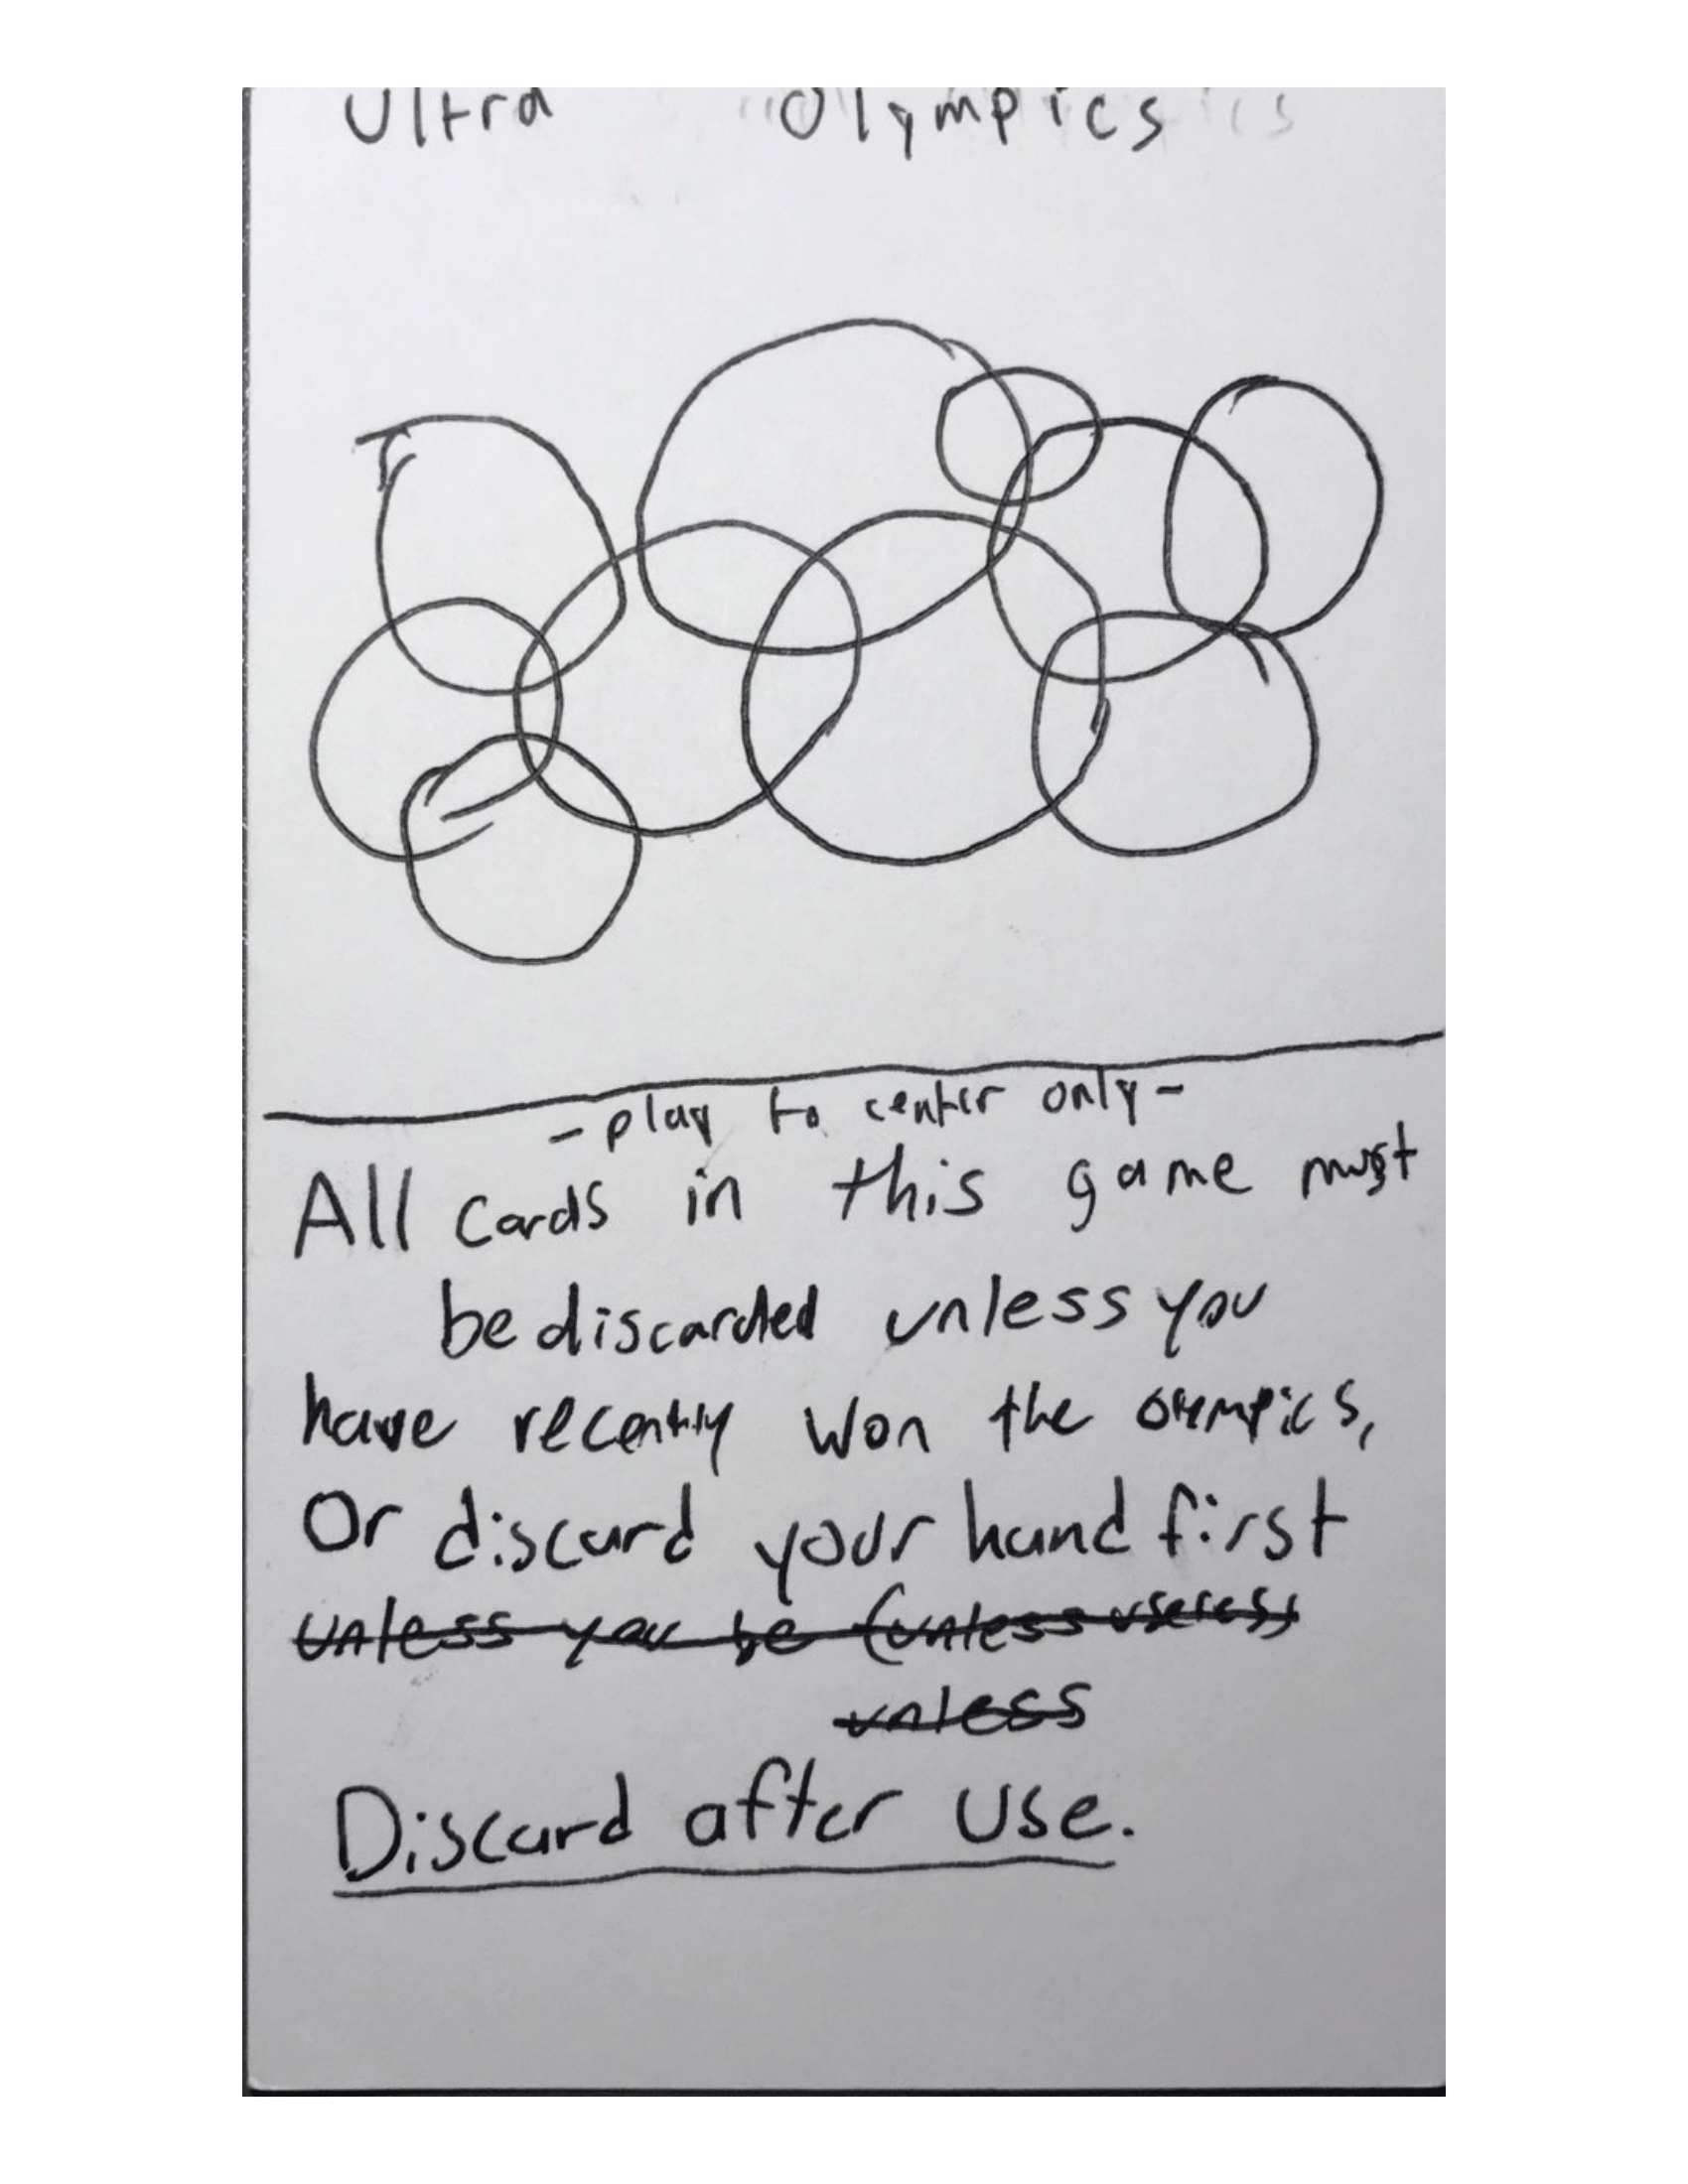 Ultra Olympics
-play to center only-
All cards in this game must
be discarded unless you
have recently won the olympics,
Or discard your hand first
unless you be (unless useless
unless
Discard after use.